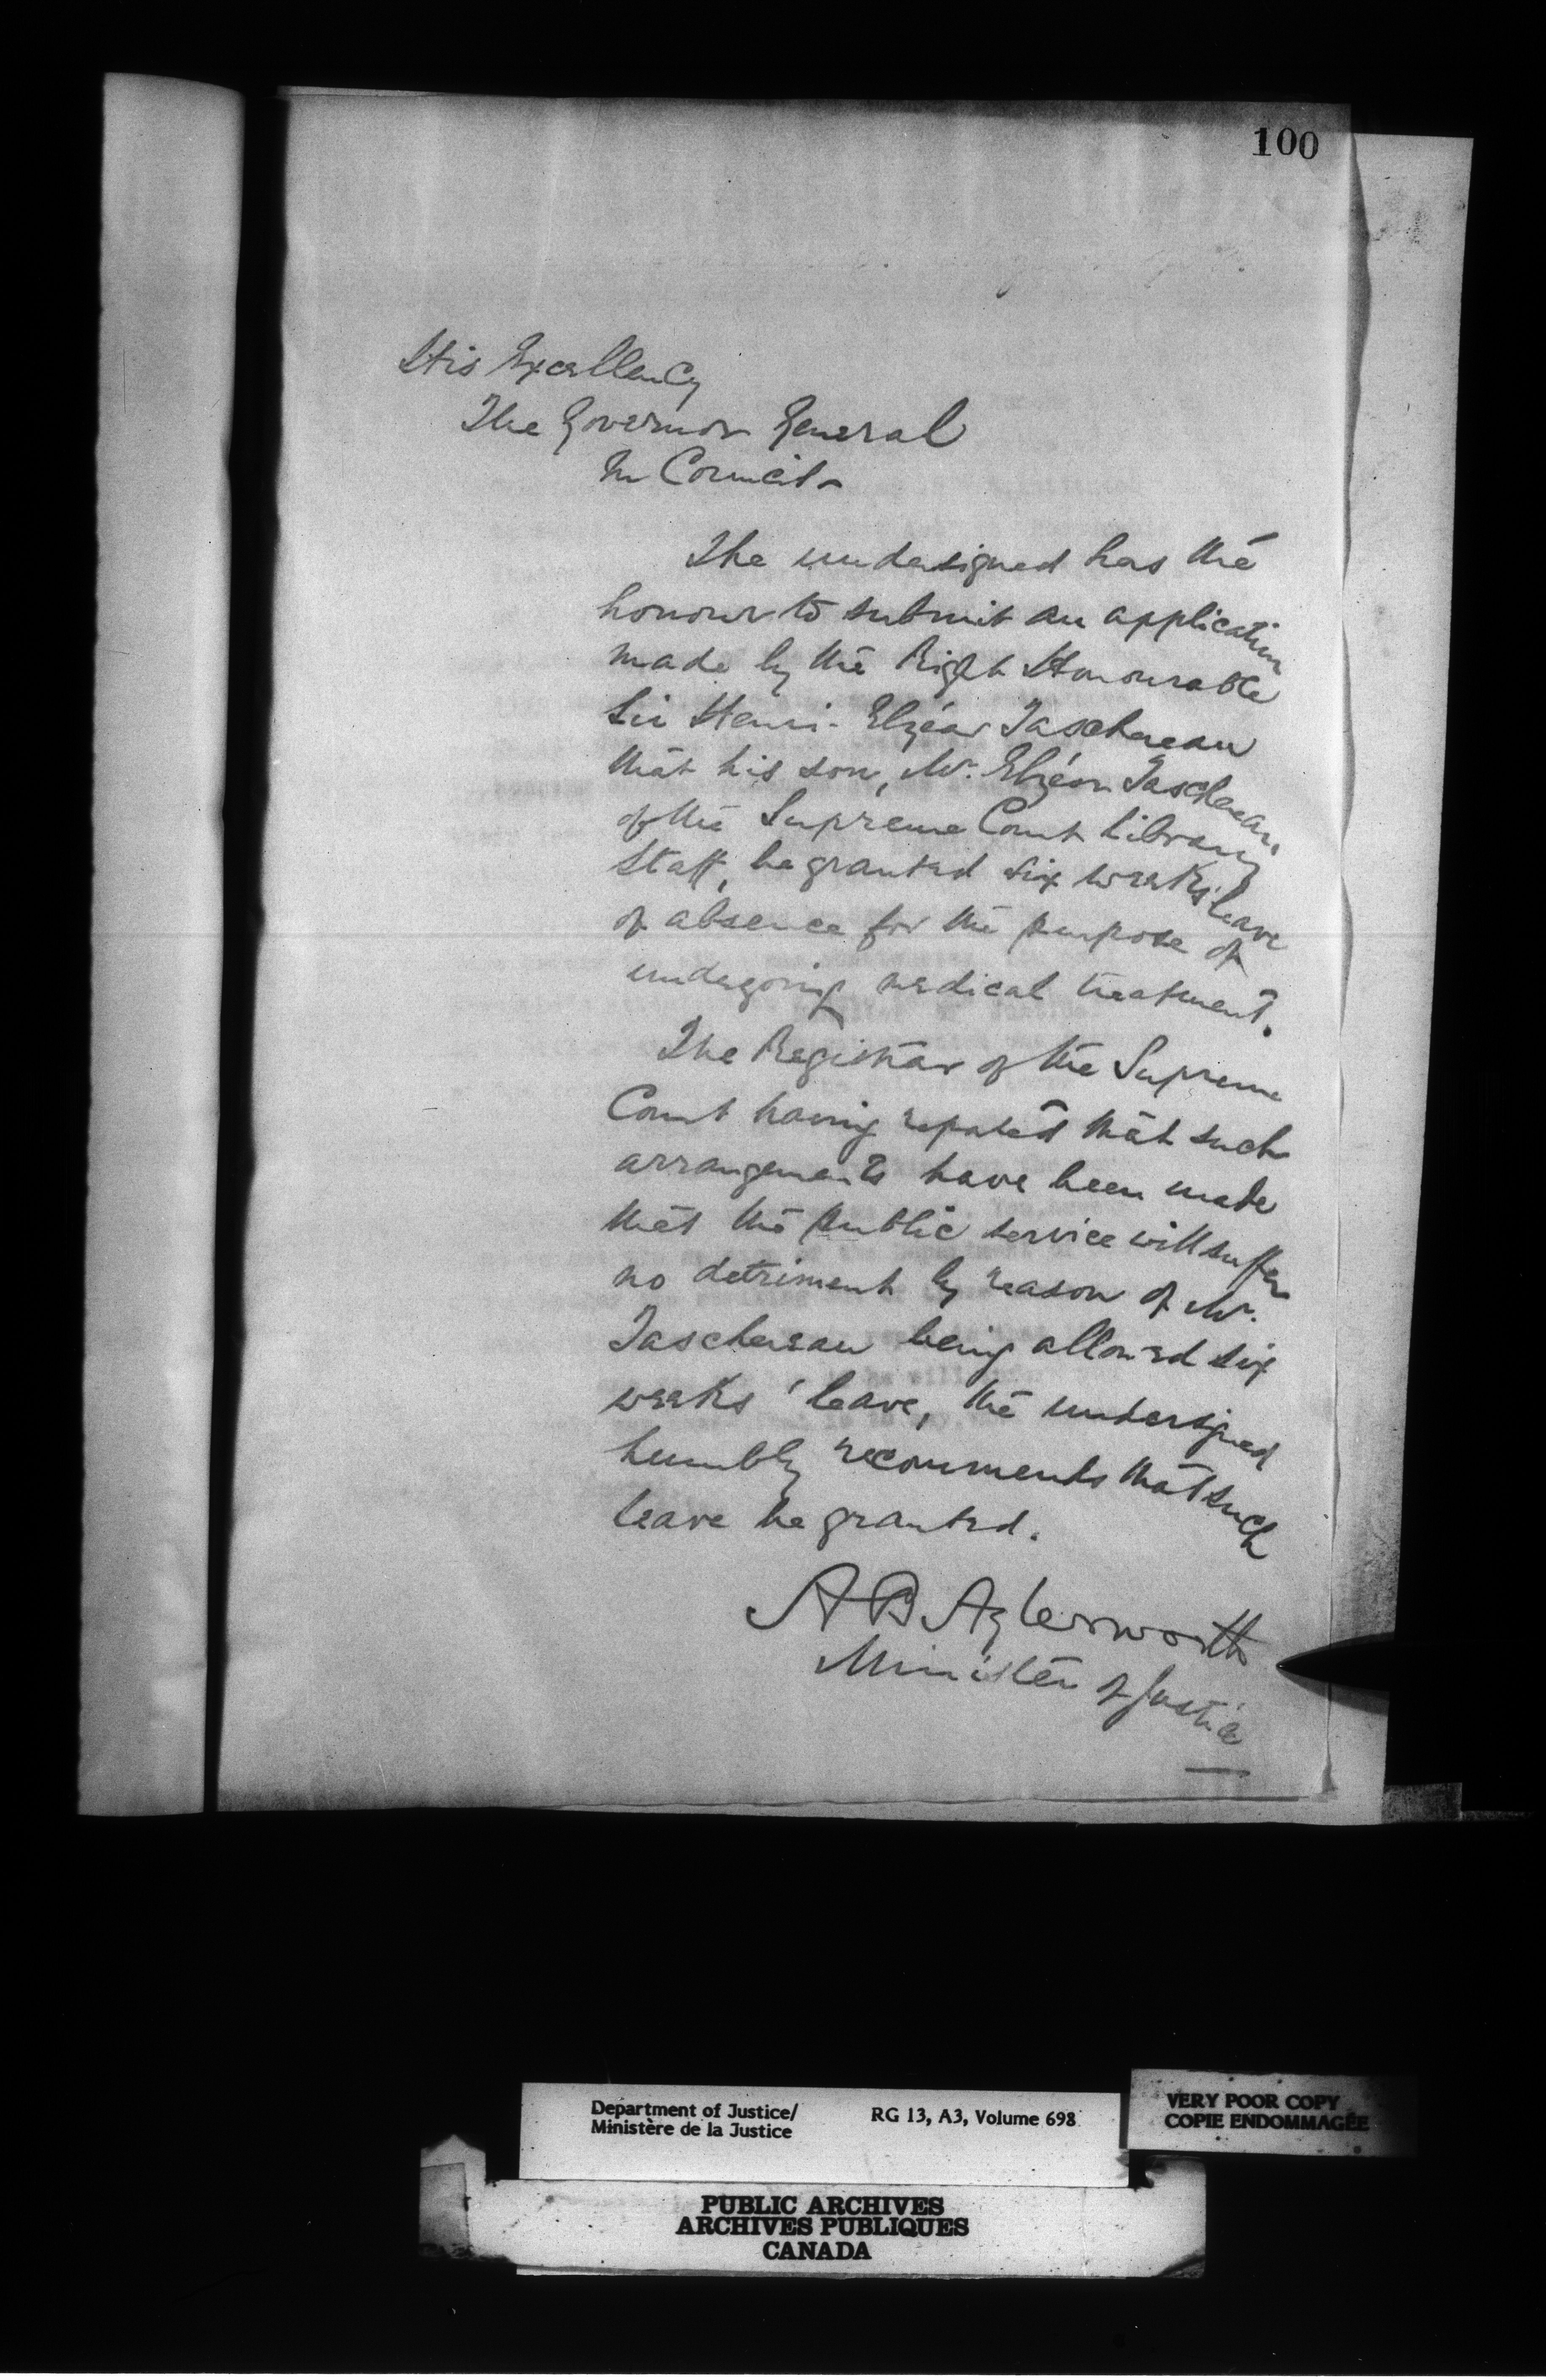 100
His Excellency
The Governor General
In Council -
The undersigned has the
honour to submit an application
made by the Right Honourable
Sir Henri-Elzéar Taschereau
that his son, Mr. Elzéar Taschereau,
of the Supreme Court Library
Staff, be granted six weeks' leave
of absence for the purpose of
undergoing medical treatment.
The Registrar of the Supreme
Court having reported that such
arrangements have been made
that the public service will suffer
no detriment by reason of Mr.
Taschereau being allowed six
weeks' leave, the undersigned
humbly recommends that such
leave be granted.
A B Aylesworth
Minister of Justice
Department of Justice/
Ministère de la Justice
RG 13, A3, Volume 698
VERY POOR COPY
COPIE ENDOMMAGÉE
PUBLIC ARCHIVES
ARCHIVES PUBLIQUES
CANADA